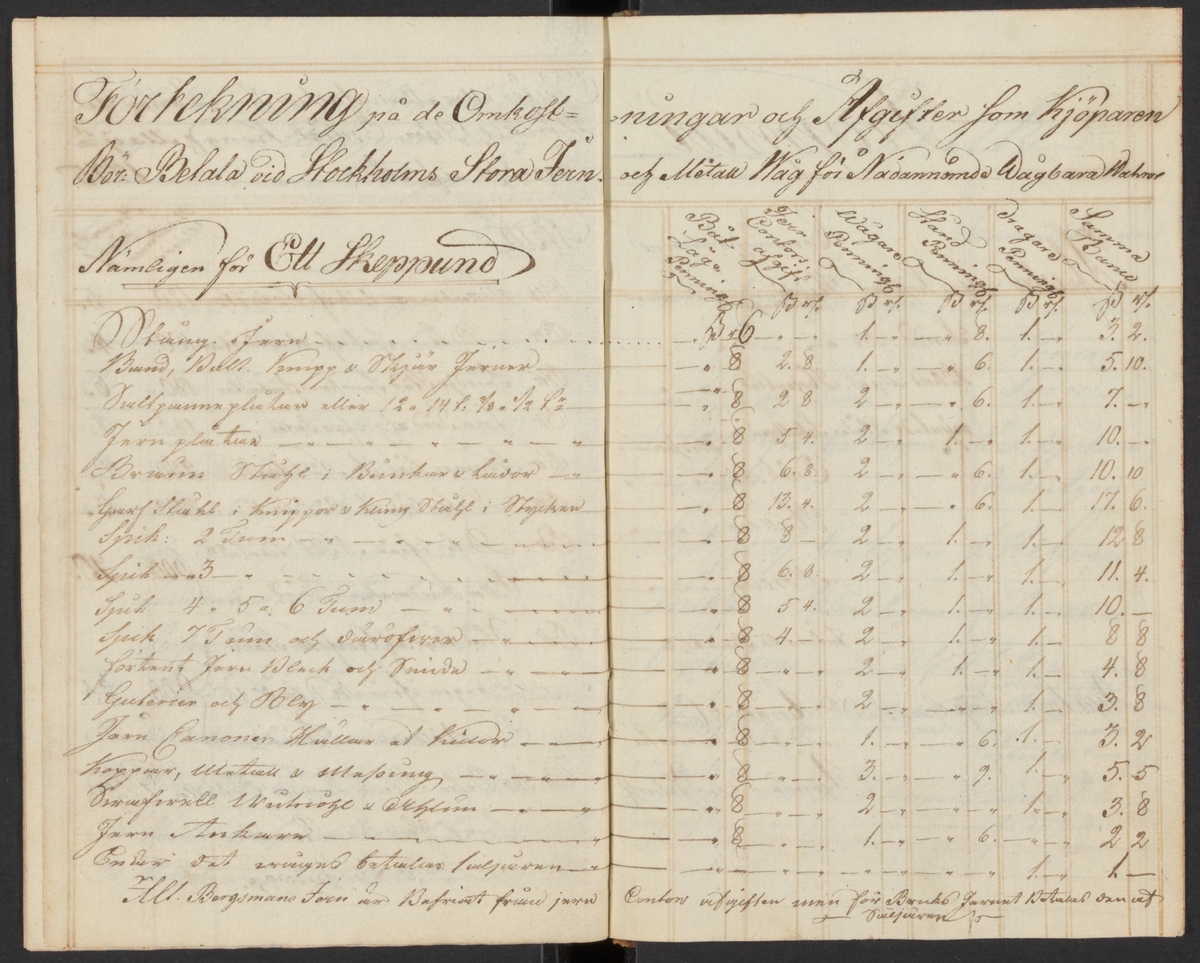 Förtekning på de Omkost= ningar och Afgifter som Kjöparen
Bör Betala vid Stockholms Stora Jern- och Metall Wåg för Nådannämde Wågbara Wahror
Nämligen för Ett Skeppund
Båt Lage Penning
Jern Contors afgift
Wågare Penning
Stand Penning
Dragare Penning
Summa Banco
ß rs. ß rs. ß rs. ß rs. ß rs.
Stång Jern ß r 6 - - 1. - - 8. 1. - 3. 2.
Band, Bult Knipp & Skjär Jerner „ 8 2. 8 1. - „ 6. 1. - 5. 10.
Saltpanneplåtar eller 12 a 14 „ 8 2 8 2 - „ 6. 1. - 7. -
Jern plåtar „ 8 5 4. 2 - 1. - 1. - 10. -
Braun Ståhl i Bunkar & Lådor „ 8 6. 8. 2 - „ 6. 1. - 10. 10
Garf Ståhl i Knippor & Kung Ståhl i Stycken „ 8 13. 4. 2 - „ 6. 1. - 17. 6.
Spik: 2 Tum „ 8 8 - 2 - 1. - 1. - 12 8
Spik „ 3 „ „ 8 6. 8. 2 - 1. - 1. - 11. 4.
Spik 4 „ 5 a 6 Tum „ 8 5 4. 2 - 1. - 1. - 10. -
Spik 7 Tum och däröfwer „ 8 4. - 2 - 1. - 1. - 8 8
Förtent Jern Bleck och Smide „ 8 „ - 2 - 1. - 1. - 4. 8
Gutwier och Bly „ 8 „ - 2 - „ - 1. - 3. 8
Järn Canoner Hällar at Kulor „ 8 „ - 1. - - 6. 1. - 3. 2
Koppar, Metall & Messing „ 8 „ - 3. - „ 9. 1. - 5. 5
Swafwell & Allun „ 8 „ - 2 - „ „ 1. - 3. 8
Jern Ankare „ 8 „ - 1. - „ 6. „ - 2 2
det wräges betalas Säljaren „ - „ - „ - „ - 1. - 1. -
Alt. Bergsmans Jern är Befriat från jern Contors afgiften men för Bruks Jernet Betalas den at
Säljaren